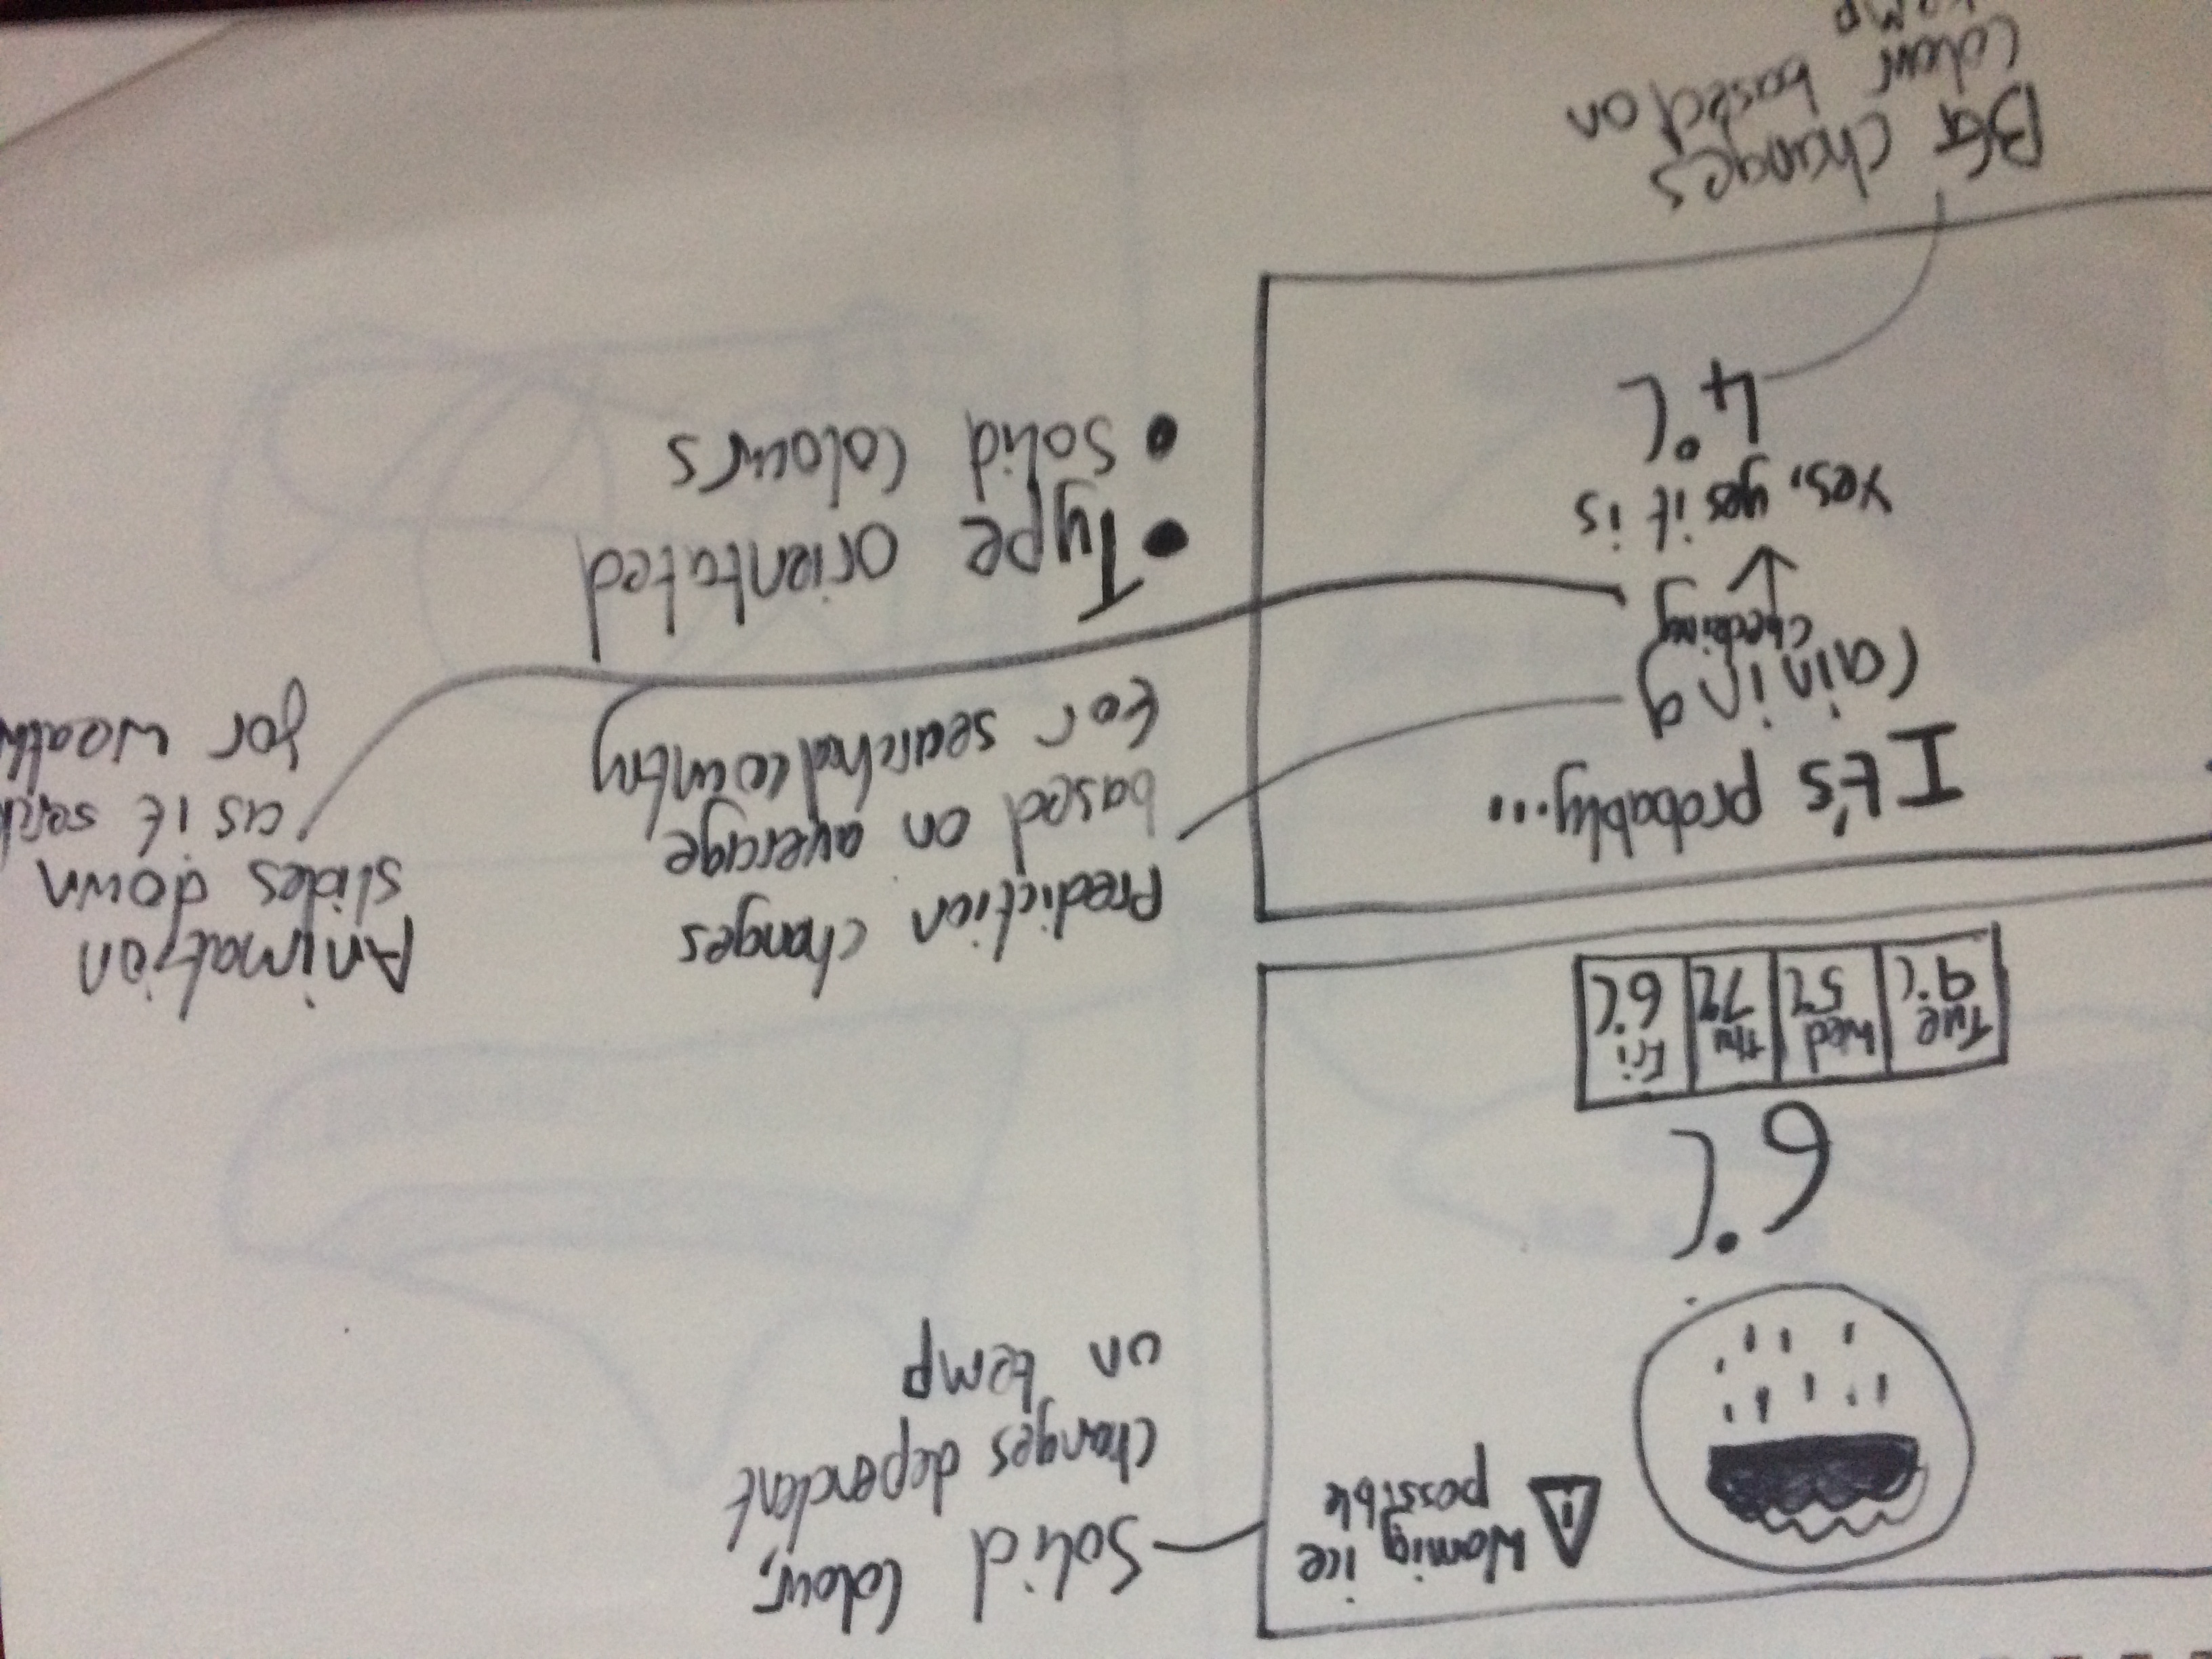 Warnig ice
possible
6°C
Tue Wed Thu Fri
9°C 5°C 7°C 6°C
Solid Colour,
changes dependent
on temp
It's probably...
raining
checking
Yes, yes it is
4°C
Prediction changes
based on average
for searched country
Animation
slides down
as it
for
• Type orientated
• Solid Colours
BG changes
Colour based on
temp